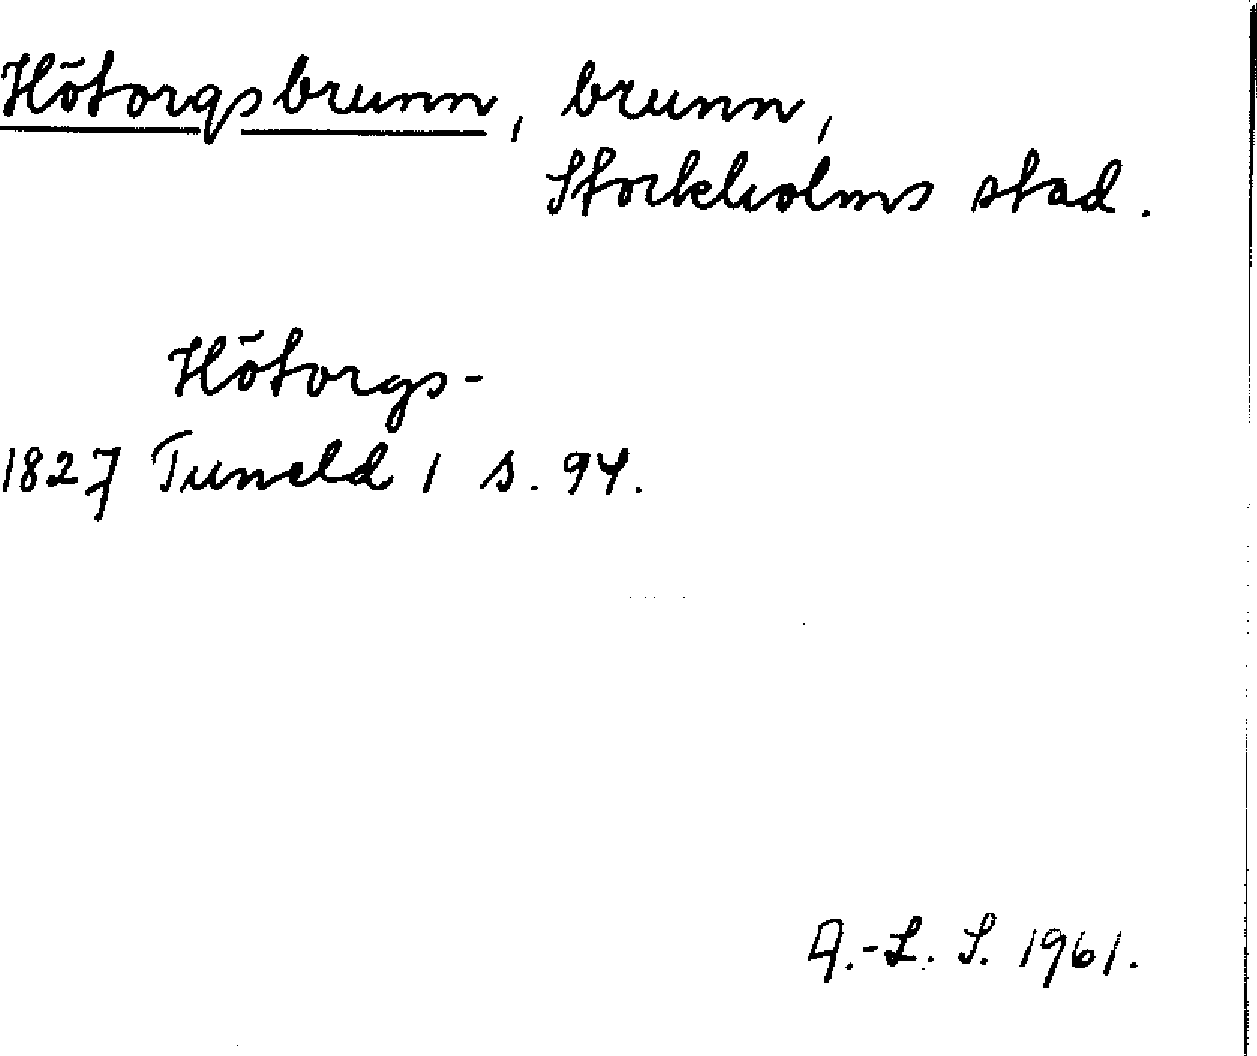 Hötorgsbrunn, brunn,
Stockholms stad.
Hötorgs-
1827 Tuneld 1 s. 94.
A.-L. S. 1961.